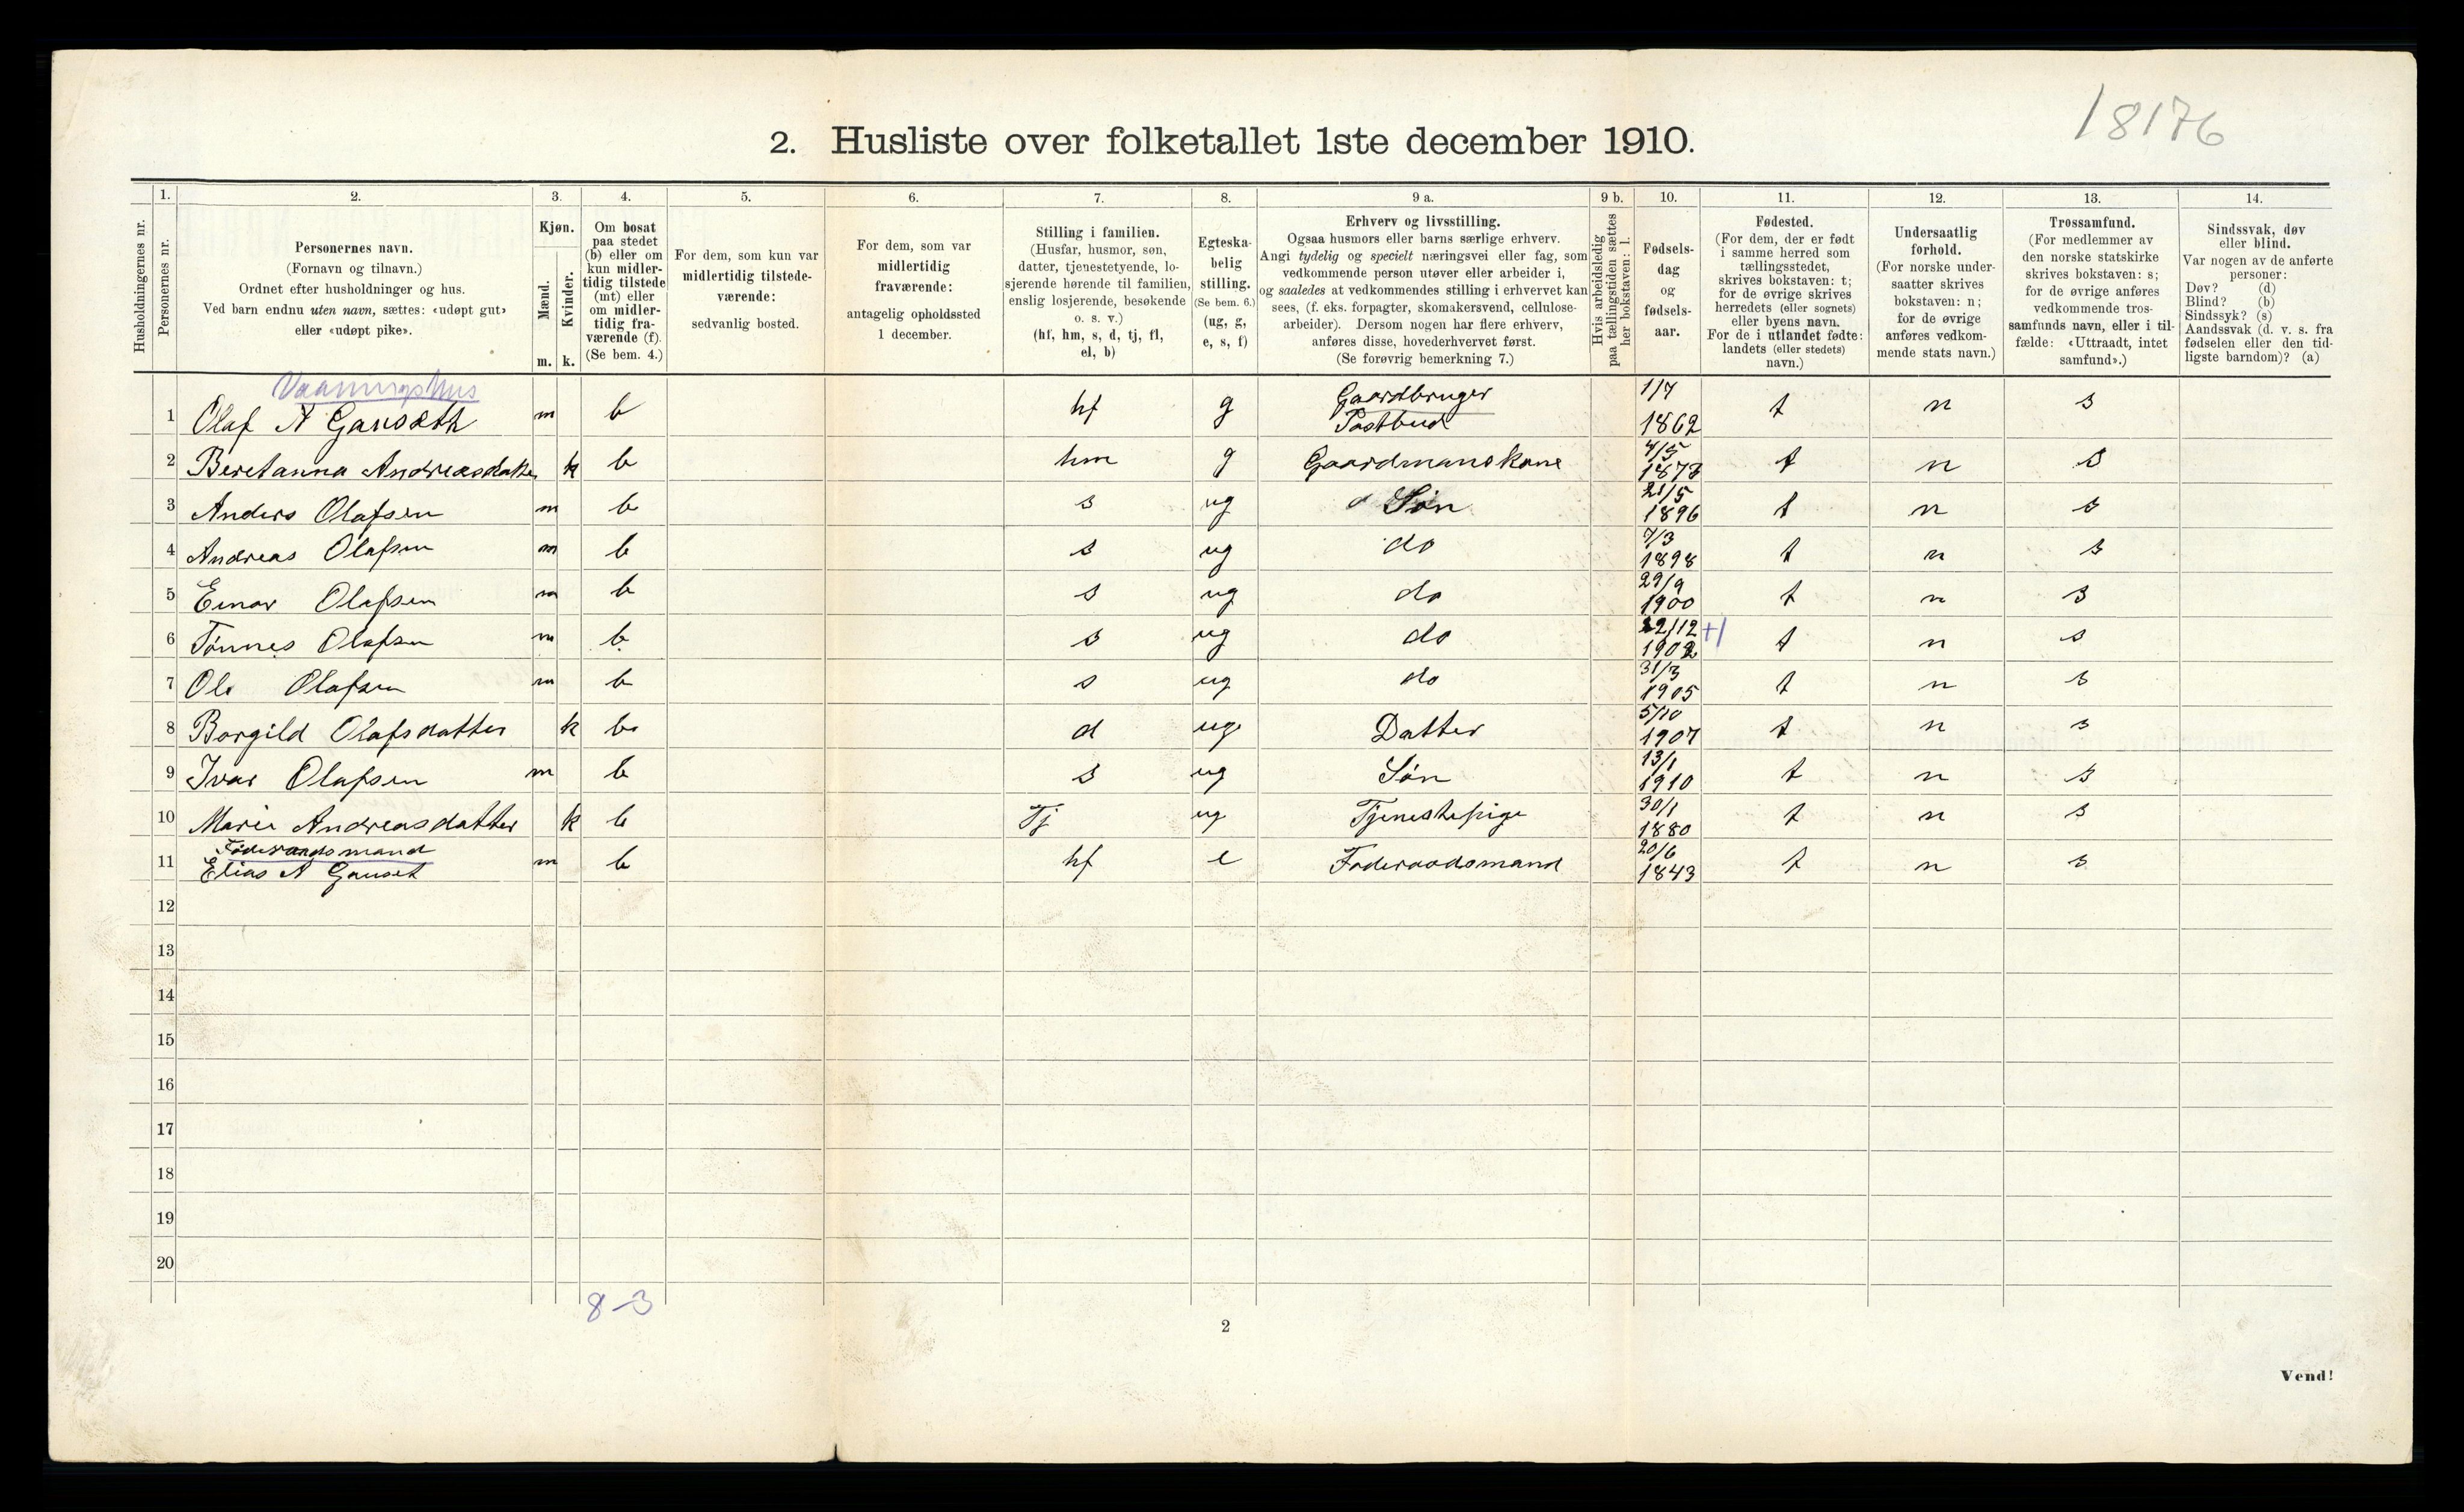 18176
2. Husliste over folketallet 1ste december 1910.
Husholdningernes nr.
1.
Personernes nr.
2.
Personernes navn.
(Fornavn og tilnavn.)
Ordnet efter husholdninger og hus.
Ved barn endnu uten navn, sættes: «udøpt gut»
eller «udøpt pike».
3.
Kjøn.
Mænd.
Kvinder.
m. k.
4.
Om bosat
paa stedet
(b) eller om
kun midler-
tidig tilstede
(mt) eller
om midler-
tidig fra-
værende (f).
(Se bem. 4.)
5.
For dem, som kun var
midlertidig tilstede-
værende:
sedvanlig bosted.
6.
For dem, som var
midlertidig
fraværende:
antagelig opholdssted
1 december.
7.
Stilling i familien.
(Husfar, husmor, søn,
datter, tjenestetyende, lo-
sjerende hørende til familien,
enslig losjerende, besøkende
o. s. v.)
(hf, hm, s, d, tj, fl,
el, b)
8.
Egteska-
belig
stilling.
(Se bem. 6.)
(ug, g,
e, s, f)
9 a.
Erhverv og livsstilling.
Ogsaa husmors eller barns særlige erhverv.
Angi tydelig og specielt næringsvei eller fag, som
vedkommende person utøver eller arbeider i,
og saaledes at vedkommendes stilling i erhvervet kan
sees, (f. eks. forpagter, skomakersvend, cellulose-
arbeider). Dersom nogen har flere erhverv,
anføres disse, hovederhvervet først.
(Se forøvrig bemerkning 7.)
9 b.
Hvis arbeidsledig
paa tællingstiden sættes
her bokstaven: l.
10.
Fødsels-
dag
og
fødsels-
aar.
11.
Fødested.
(For dem, der er født
i samme herred som
tællingsstedet,
skrives bokstaven: t;
for de øvrige skrives
herredets (eller sognets)
eller byens navn.
For de i utlandet fødte:
landets (eller stedets)
navn.)
12.
Undersaatlig
forhold.
(For norske under-
saatter skrives
bokstaven: n;
for de øvrige
anføres vedkom-
mende stats navn.)
13.
Trossamfund.
(For medlemmer av
den norske statskirke
skrives bokstaven: s;
for de øvrige anføres
vedkommende tros-
samfunds navn, eller i til-
fælde: «Uttraadt, intet
samfund».)
14.
Sindssvak, døv
eller blind.
Var nogen av de anførte
personer:
Døv? (d)
Blind? (b)
Sindssyk? (s)
Aandssvak (d. v. s. fra
fødselen eller den tid-
ligste barndom)? (a)
Vaaningshus
1 Olaf A Gansæth m b hf g Gaardbruger Postbud 1/7 1862 t n s
2 Beretanna Andreasdatter k b hm g Gaardmanskone 4/5 1873 t n s
3 Anders Olafsen m b s ug Søn 21/5 1896 t n s
4 Andreas Olafsen m b s ug do 7/3 1898 t n s
5 Einar Olafsen m b s ug do 29/9 1900 t n s
6 Tønnes Olafsen m b s ug do 22/12 1902 +1 t n s
7 Ole Olafsen m b s ug do 31/3 1905 t n s
8 Borgild Olafsdatter k b d ug Datter 5/10 1907 t n s
9 Ivar Olafsen m b s ug Søn 13/1 1910 t n s
10 Marie Andreasdatter k b Tj ug Tjenestepige 30/1 1880 t n s
Føderaadsmand
11 Elias A Ganset m b hf e Føderaadsmand 20/6 1843 t n s
12
13
14
15
16
17
18
19
20
8-3
2
Vend!